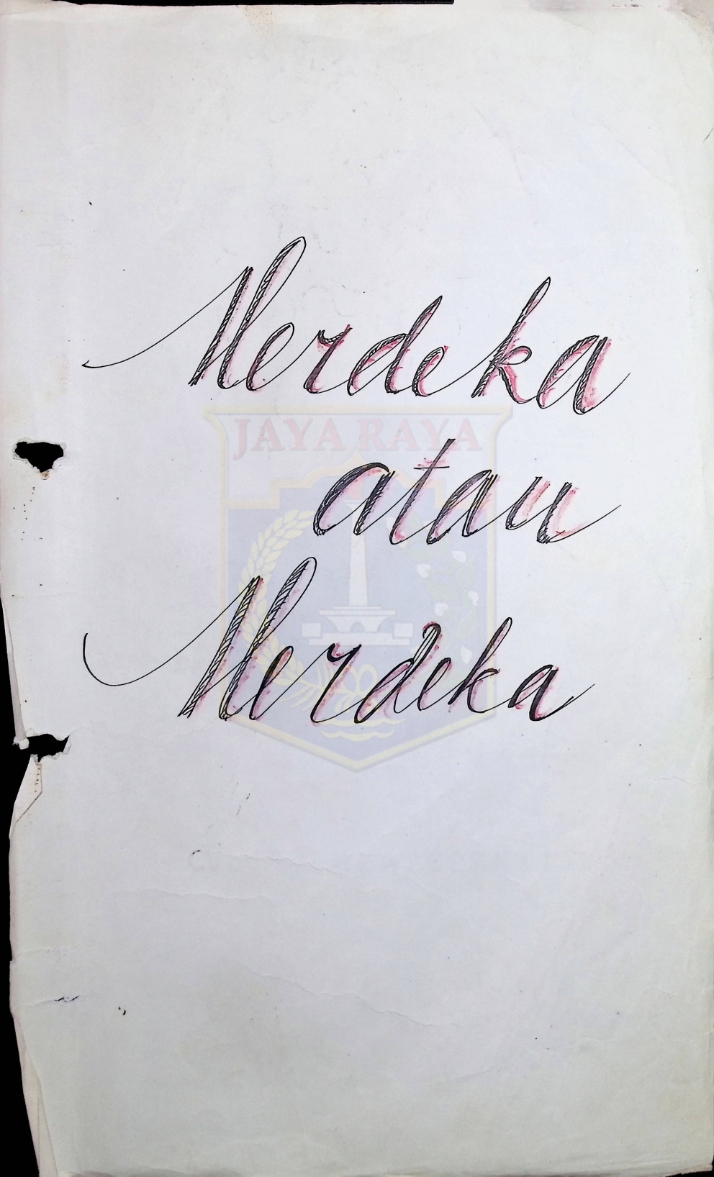 Merdeka
JAYA RAYA
atau
Merdeka